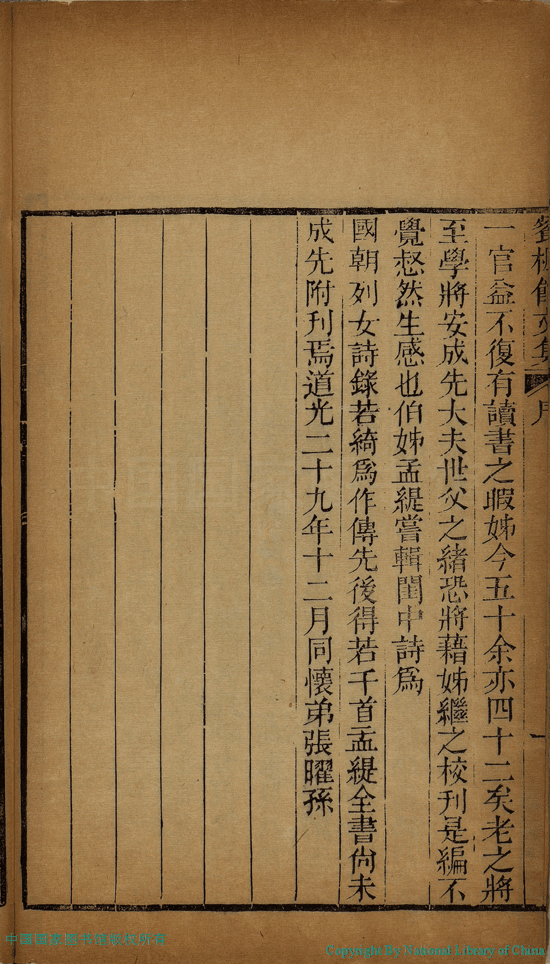 一官益不復有讀書之暇姊今五十余亦四十二矣老之將
至學將安成先大夫世父之緒恐將藉姊繼之校刊是編不
覺惄然生感也伯姊孟緹嘗輯閨中詩爲
國朝列女詩錄若綺爲作傳先後得若干首孟緹全書尙未
成先附刊焉道光二十九年十二月同懷弟張曜孫
Copyright By National Library of China